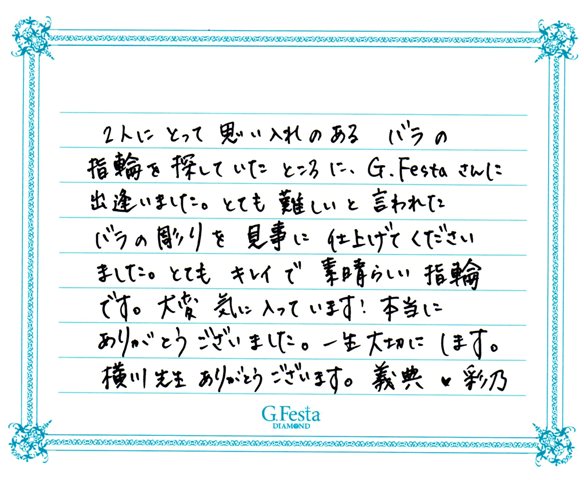 2人にとって思い入れのあるバラの
指輪を探していたところに、G.Festaさんに
出逢いました。とても難しいと言われた
バラの彫りを見事に仕上げてください
ました。とてもキレイで素晴らしい指輪
です。大変気に入っています!本当に
ありがとうございました。一生大切にします。
横川先生ありがとうございます。義典♥彩乃
G.Festa
DIAMOND